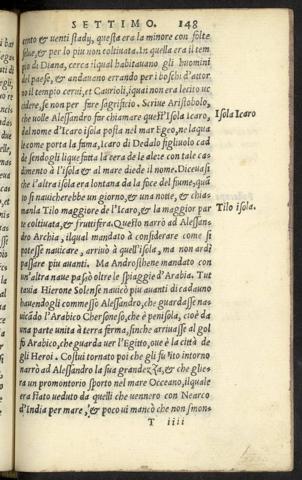 SETTIMO. 148
cento & uenti stady, questa era la minore con folte
piante, & per lo piu non coltiuata. In quella era il tem
pio di Diana, cerca il qual habitauano gli huomini
del paese, & andauano errando per i boschi d'attor
no il tempio cerui, et Caurioli, i quai non era lecito uc
cidere, se non per fare sagrificio. Scriue Aristobolo,
che uolle Alessandro far chiamare quest'Isola Icaro,
Isola Icaro
dal nome d'Icaro isola posta nel mar Egeo, ne laqua
le come porta la fama, Icaro di Dedalo figliuolo cad
de sendogli liquefatta la cera de le ale: con tale cas
dimento à l'isola & al mare diede il nome. Diceuasi
che l'altra isola era lontana da la foce del fiume, quā
to si nauicherebbe un giorno, & una notte, & chia
manla Tilo maggiore de l'Icaro, & la maggior par
Tilo isola.
te coltiuata, & fruttifera. Questo narrò ad Alessan
dro Archia, il qual mandato à considerare come si
potesse nauicare, arriuò à quell'isola, ma non ardì
passare piu auanti. Ma Androsthene mandato con
un'altra naue passò oltre le spiaggie d'Arabia. Tut
tauia Hierone Solense nauicò piu auanti di cadauno
hauendogli commesso Alessandro, che guardasse na
uicādo l'Arabico Chersoneso, che è penisola, cioè da
una parte unita à terra ferma, finche arriuasse al gol
fo Arabico, che guarda uer l'Egitto, oue è la città de
gli Heroi. Costui tornato poi che gli fu ito intorno
narrò ad Alessandro la sua grandezza, & che glie
ra un promontorio sporto nel mare Occeano, il quale
era stato ueduto da quelli che uennero con Nearco
d'India per mare, & poco ui mancò che non smon
T iiii